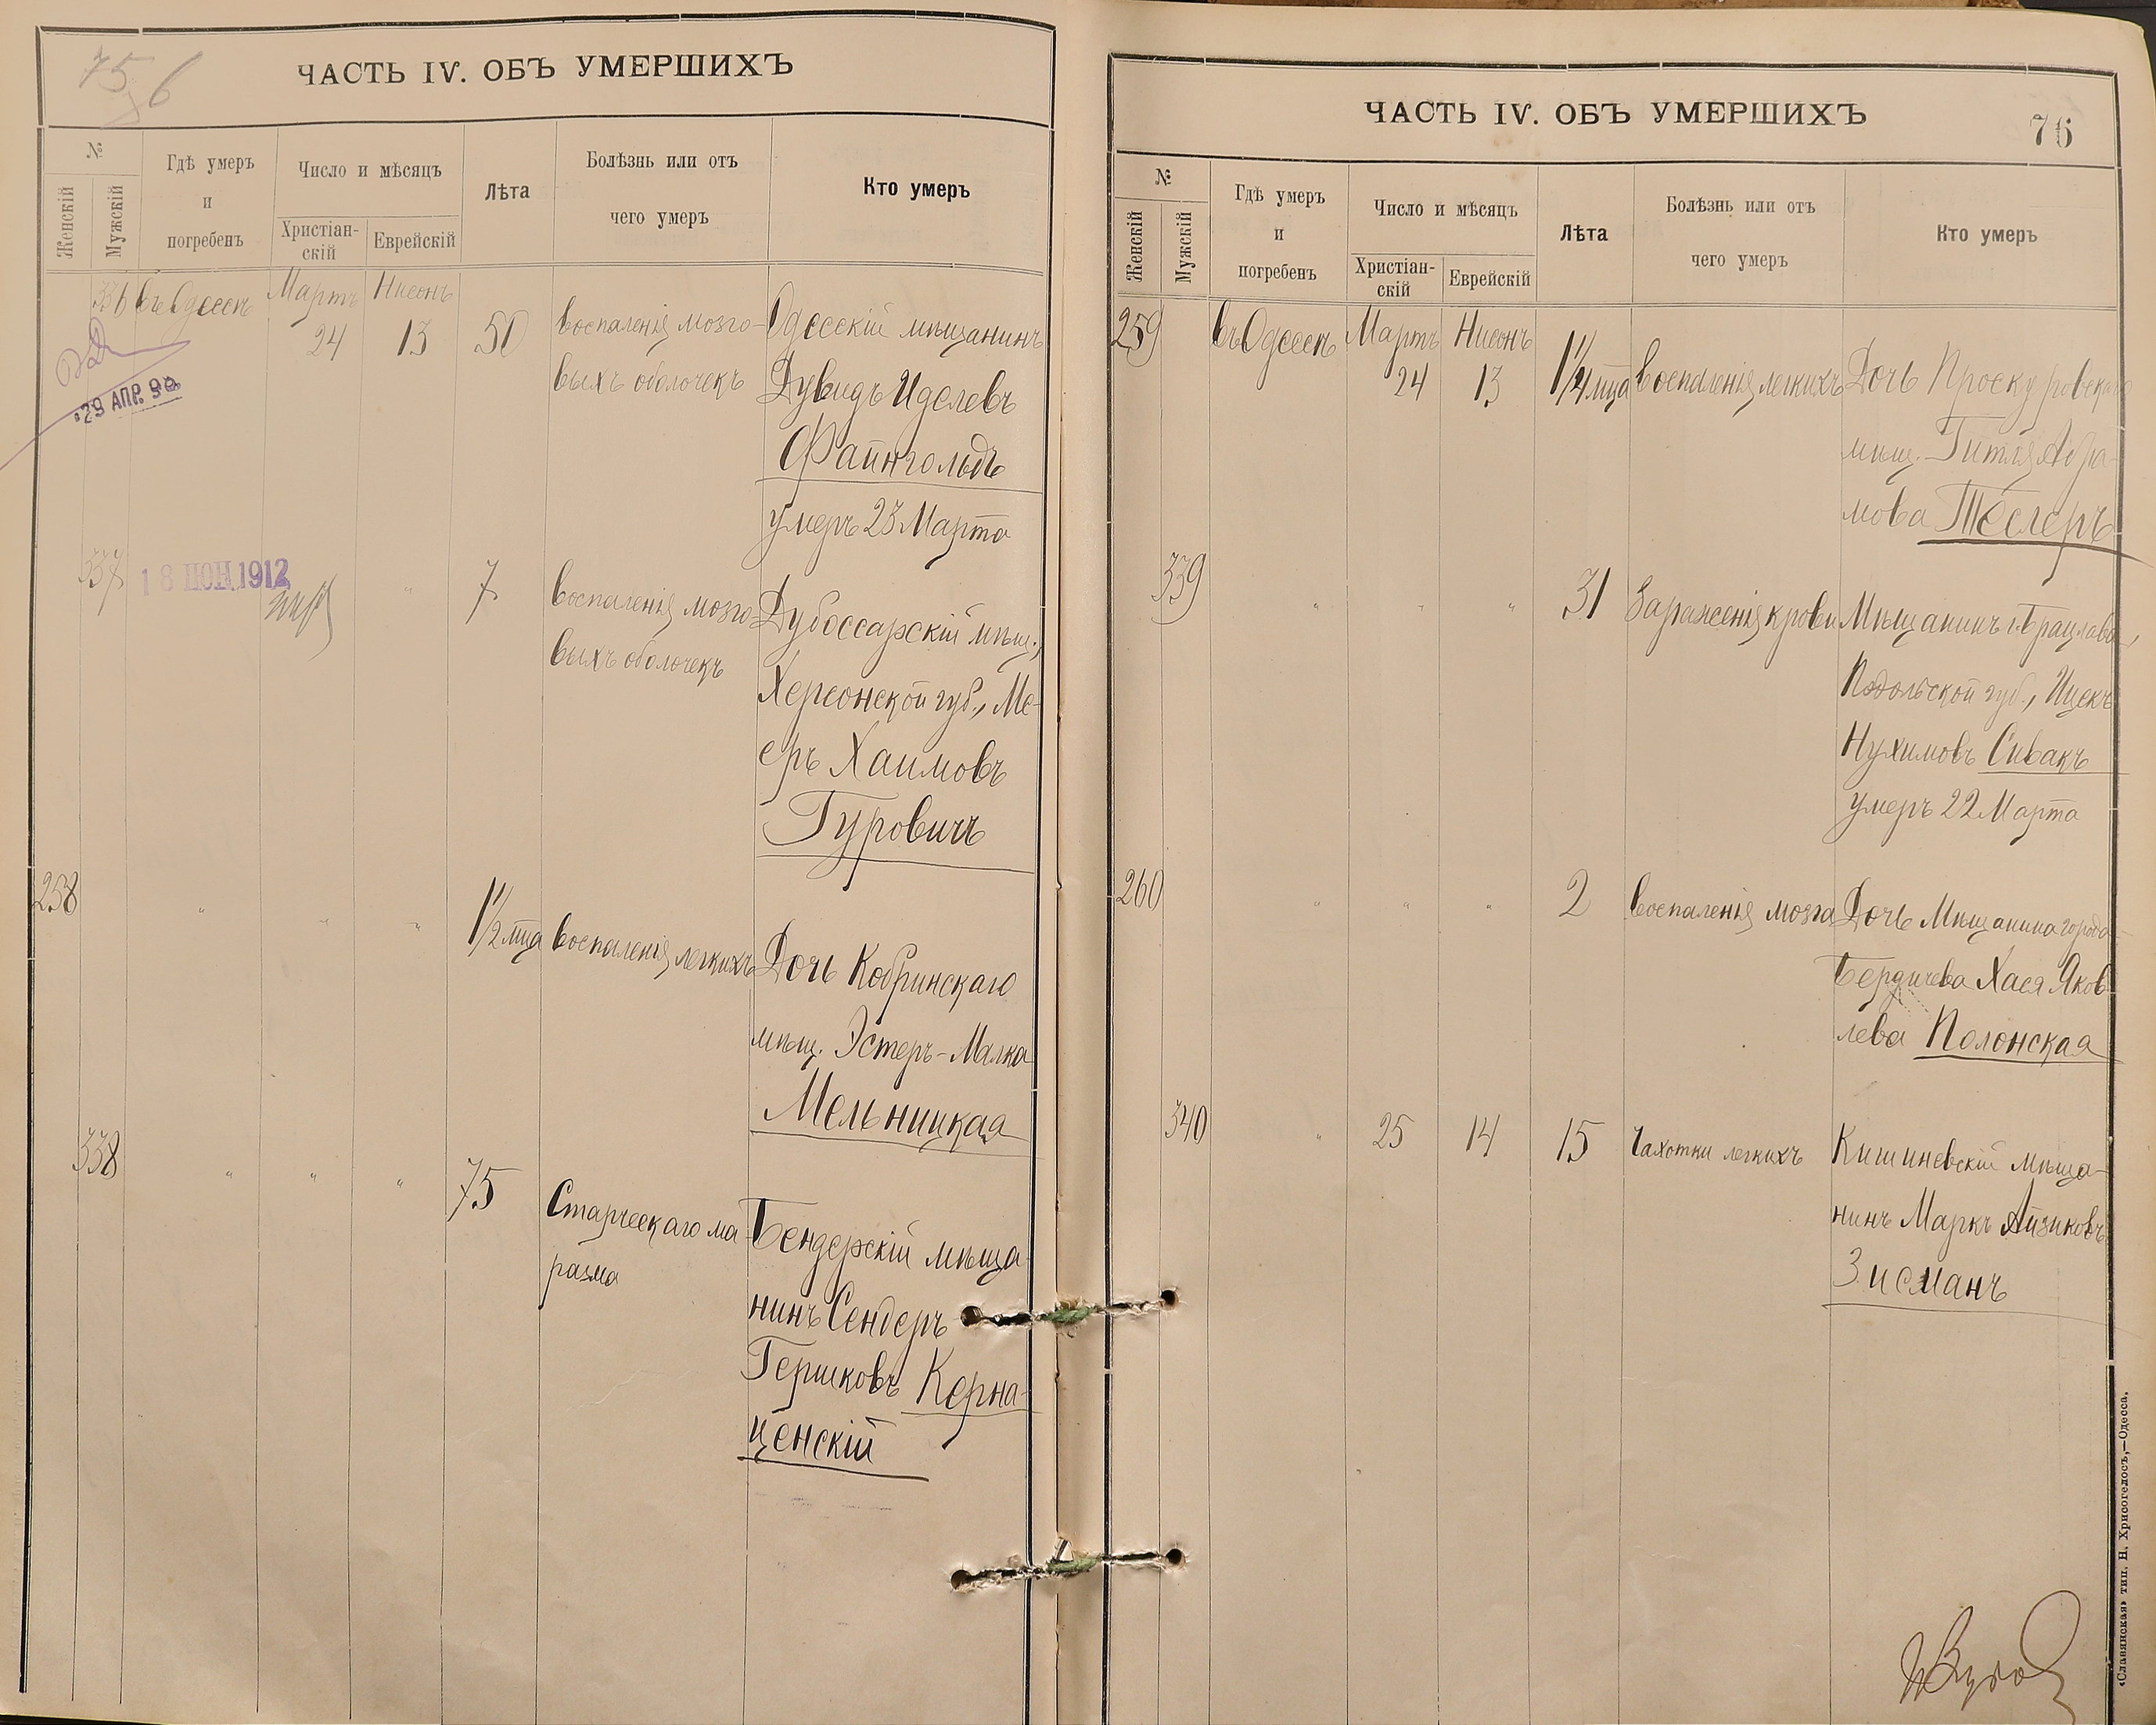 75
76
ЧАСТЬ IV. ОБЪ УМЕРШИХЪ
№
Женскій
Мужскій
Гдѣ умеръ
и
погребенъ
Число и мѣсяцъ
Христіан-
скій
Еврейскій
Лѣта
Болѣзнь или отъ
чего умеръ
Кто умеръ
336 въ Одессѣ Мартъ 24 Нисонъ 13 50
воспаленія мозго-
выхъ оболочекъ
Одесскій мѣщанинъ
Дувидъ Иделевъ
Файнгольдъ
умеръ 23 Марта
29 АПР. 9
337 18 ІЮН. 1912 " 7
воспаленія мозго-
выхъ оболочекъ
Дубоссарскій мѣщ.,
Херсонской губ., Ме-
еръ Хаимовъ
Гуровичъ
258 " " " 1 1/2 мца воспаленія легкихъ
Дочь Кобринскаго
мѣщ. Эстеръ-Малка
Мельницкая
338 " " " 75
Старческаго ма-
разма
Бендерскій мѣща-
нинъ Сендеръ
Гершковъ Керна-
ценскій
ЧАСТЬ IV. ОБЪ УМЕРШИХЪ
76
№
Женскій
Мужскій
Гдѣ умеръ
и
погребенъ
Число и мѣсяцъ
Христіан-
скій
Еврейскій
Лѣта
Болѣзнь или отъ
чего умеръ
Кто умеръ
259 въ Одессѣ Мартъ 24 Нисонъ 13 1 1/4 мца воспаленія легкихъ
Дочь Проскуровскаго
мѣщ. Гитля Абра-
мова Теслеръ
339 " " " 31 Зараженія крови
Мѣщанинъ г. Брацлава,
Подольской губ., Ицекъ
Нухимовъ Сивакъ
умеръ 22 Марта
260 " " " 2 воспаленія мозга
Дочь Мѣщанина города
Бердичева Хася Яков-
лева Полонская
340 " 25 14 15 Чахотки легкихъ
Кишиневскій мѣща-
нинъ Маркъ Айзиковъ
Зисманъ
«Славянская» тип. Н. Хрисогелосъ,—Одесса.